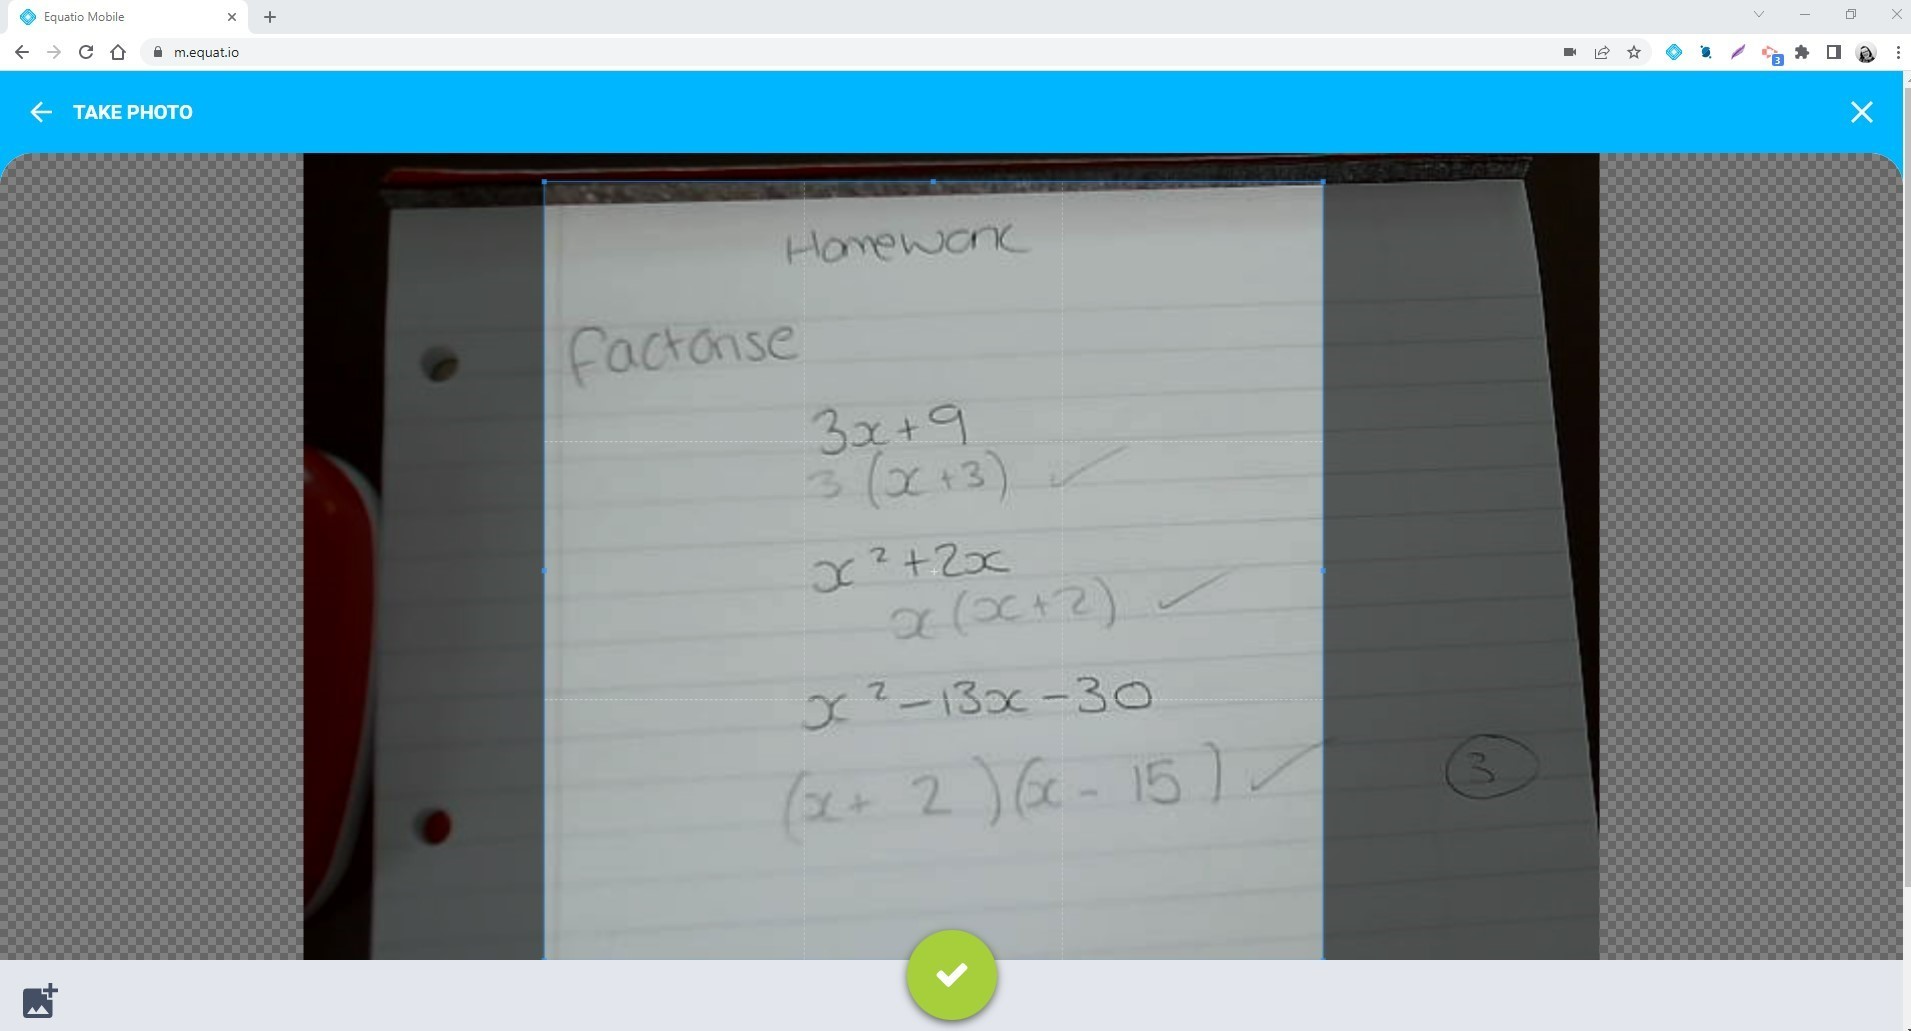 Equatio Mobile
m.equat.io
3
TAKE PHOTO
Homework
factorise
3x+9
3(x+3) ✓
x²+2x
x(x+2) ✓
x²-13x-30
(x+ 2 )(x- 15) ✓
3